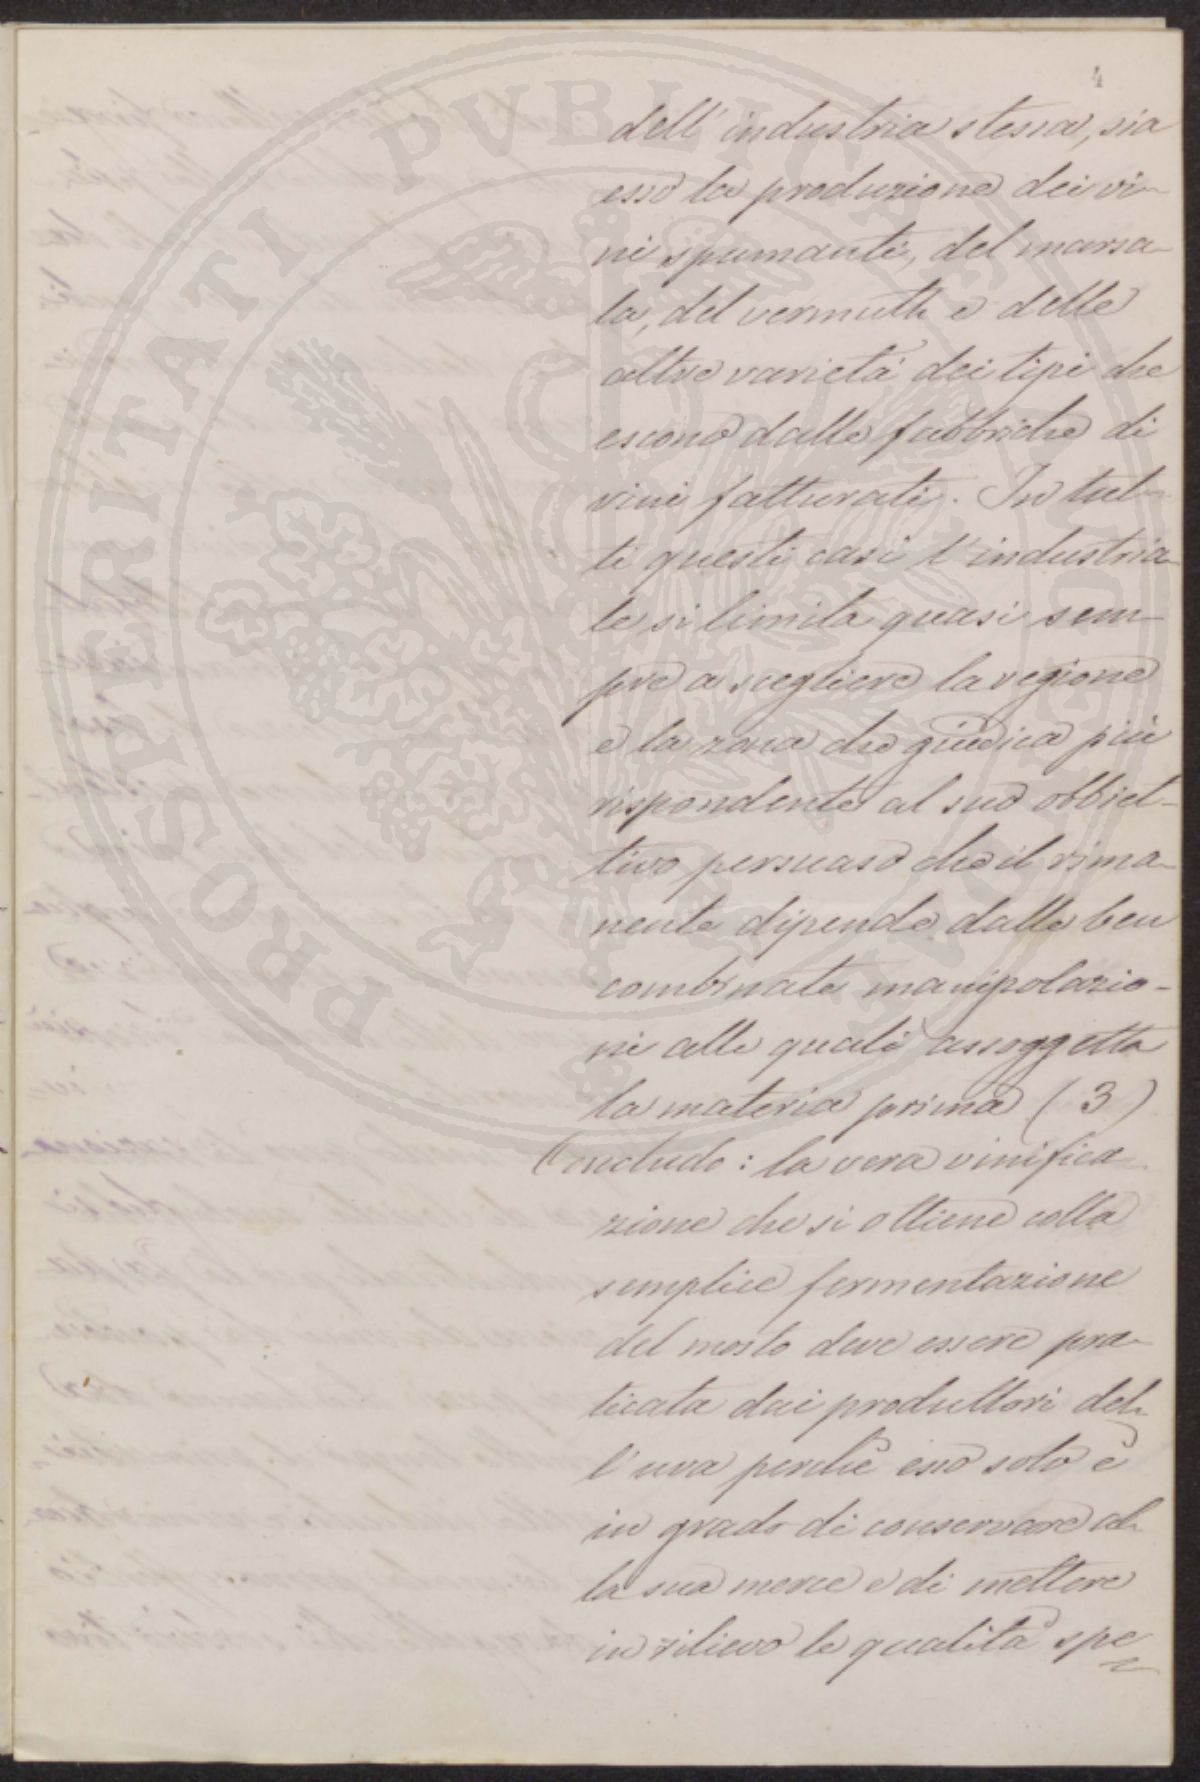 4
dell' industria stessa, sia
esso la produzione dei vi-
ni spumanti, del marsa-
la, del vermuth e delle
altre varietà dei tipi che
escono dalle fabbriche di
vini fatturati. In tut-
ti questi casi l'industria-
le si limita quasi sem-
pre a scegliere la regione
e la zona che giudica più
rispondente al suo obbiet-
tivo persuaso che il rima-
nente dipende dalle ben
combinate manipolazio-
ni alle quali assoggetta
la materia prima (3)
Concludo: la vera vinifica-
zione che si ottiene colla
semplice fermentazione
del mosto deve essere pra-
ticata dai produttori del-
l'uva perchè esso solo è
in grado di conservare al-
la sua merce e di mettere
in rilievo le qualità spe-
PROSPERITATI PVBLICAE